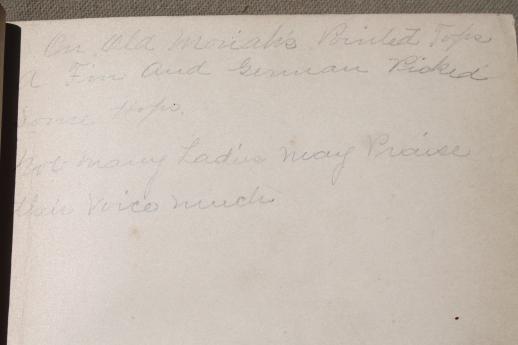 On Old Moriah's Pointed Tops
A Finn And German Picked
Some Hops.
Not Many Ladies May Praise
their Voice much